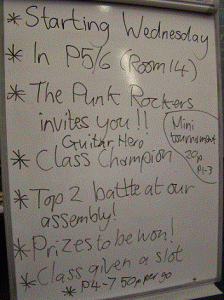 * Starting Wednesday
* In P5/6 (Room 14)
* The Punk Rockers
invites you!!
Guitar Hero
* Class Champion
Mini
tournament
20p
P1-3
* Top 2 battle at our
assembly!
* Prizes to be won!
* Class given a slot
* P4-7 50p per go